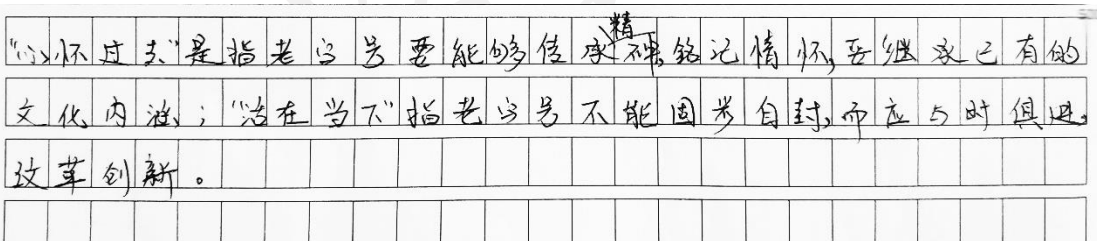 “心怀过去”是指老字号要能够传承精神,铭记情怀,要继承已有的
文化内涵;“活在当下”指老字号不能固步自封,而应与时俱进,
改革创新。